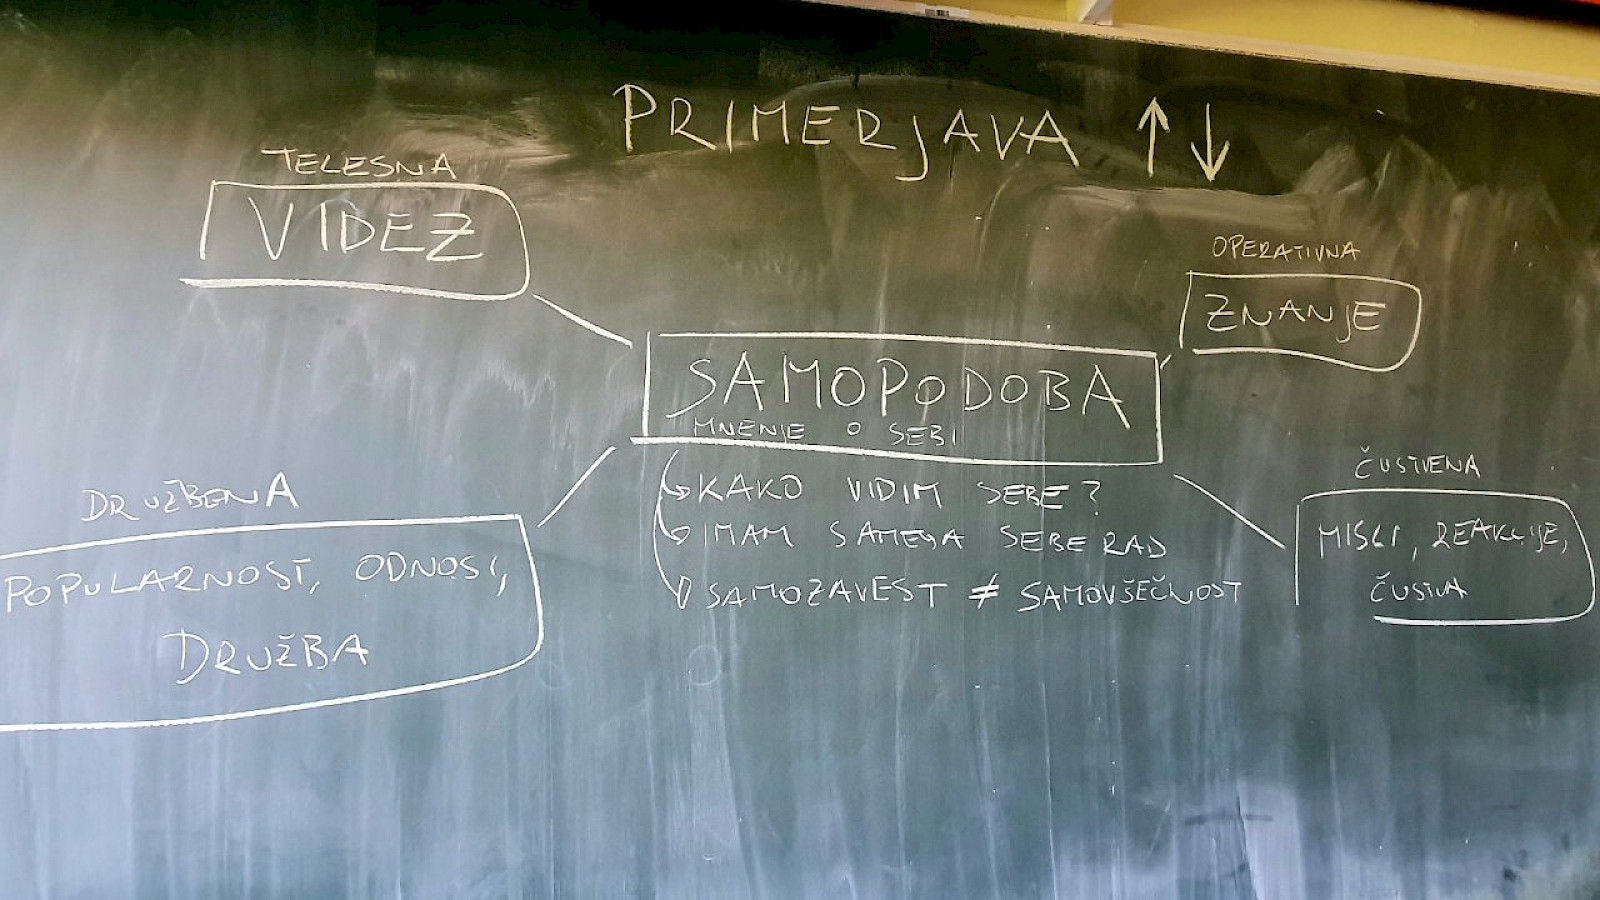 PRIMERJAVA ↑ ↓
TELESNA
VIDEZ
OPERATIVNA
ZNANJE
SAMOPODOBA
MNENJE O SEBI
KAKO VIDIM SEBE?
IMAM SAMEGA SEBE RAD
SAMOZAVEST ≠ SAMOVŠEČNOST
DRUŽBENA
POPULARNOST, ODNOSI,
DRUŽBA
ČUSTVENA
MISLI, REAKCIJE,
ČUSTVA